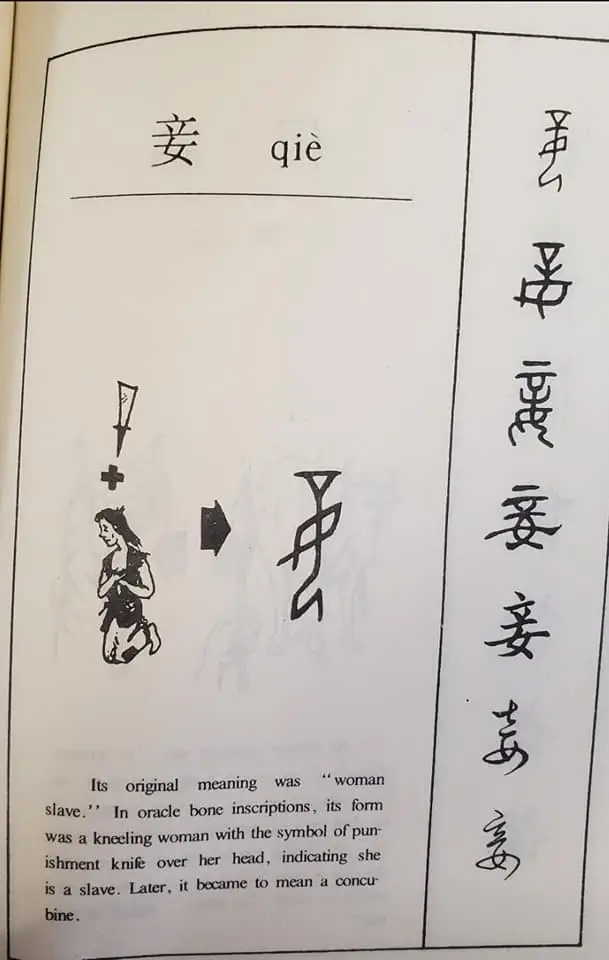 妾 qiè
Its original meaning was "woman
slave.'' In oracle bone inscriptions, its form
was a kneeling woman with the symbol of pun-
ishment knife over her head, indicating she
is a slave. Later, it became to mean a concu-
bine.
妾
妾
妾
妾